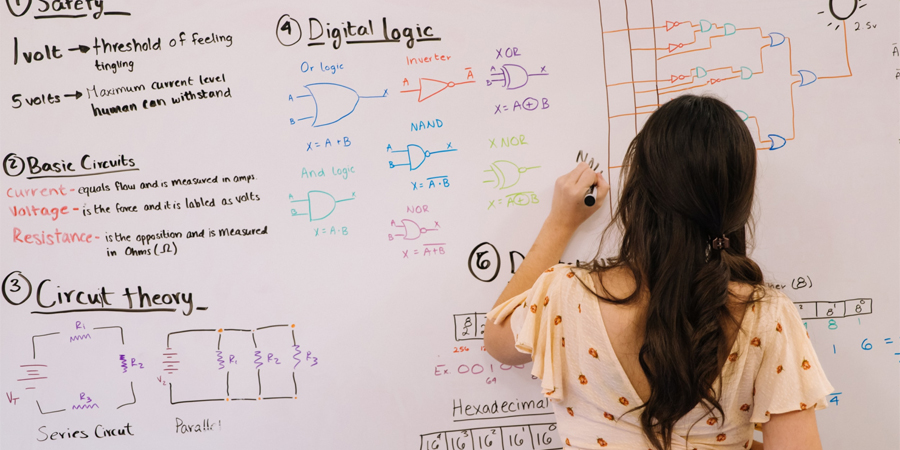 ① Safety
1 volt → threshold of feeling
tingling
5 volts → Maximum current level
human can withstand
② Basic Circuits
Current - equals flow and is measured in amps.
Voltage - is the force and it is labled as volts
Resistance - is the opposition and is measured
in Ohms (Ω)
③ Circuit theory
R₁
R₂
R₃
V_T
Series Circut
R₁
R₂
R₃
Parallel
④ Digital logic
Or logic
A
B
X
X = A + B
Inverter
A
A̅
XOR
A
B
X
X = A ⊕ B
NAND
A
B
X
X = \overline{A · B}
And logic
A
X = A · B
X NOR
X = \overline{A ⊕ B}
NOR
A
B
X
X = \overline{A + B}
2.5v
(8)
8¹
8⁰
8
1
6 =
4
256
Ex. 00100
64
Hexadecimal
16⁴ 16³ 16² 16¹ 16⁰